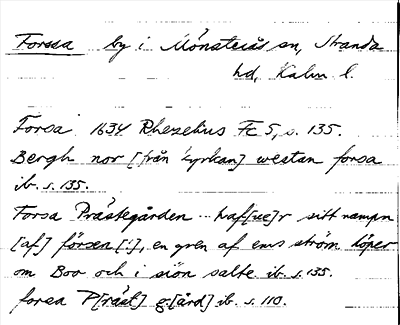 Forssa by i Mönsterås sn, Stranda
hd, Kalm l.
Forsa 1634 Rhezelius Fc 5, s. 135.
Bergh nor [från kyrkan] westan forsa
ib. s. 135.
Forsa Prästegården .. haf[ue]r sitt nampn
[af] försen [!], en gren af ems ström löper
om Boo och i siön salte ib. s. 135.
forsa P[räst] g[ård] ib. s. 110.